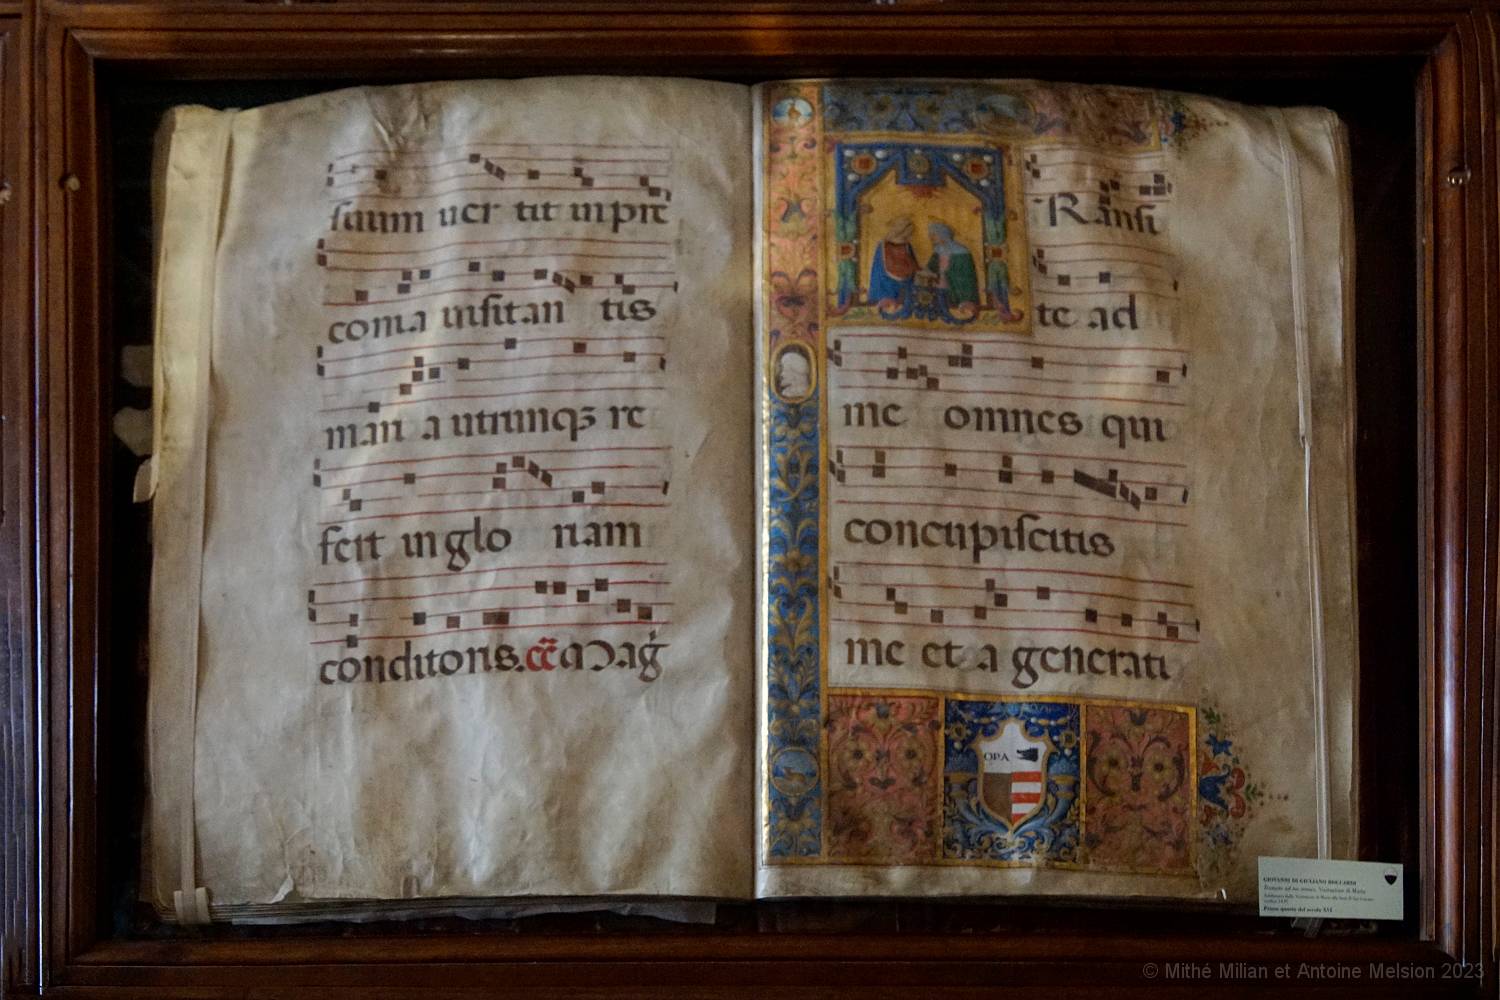 suum uer tit in pre
coma uisitan tis
man a utrunqꝫ re
fert in glo riam
conditoris. Mag
Ransi
te ad
me omnes qui
concupiscitis
me et a generati
OPA
GIOVANNI DI GIULIANO BOCCARDI
Primo quarto del secolo XVI
© Mithé Milian et Antoine Melsion 2023